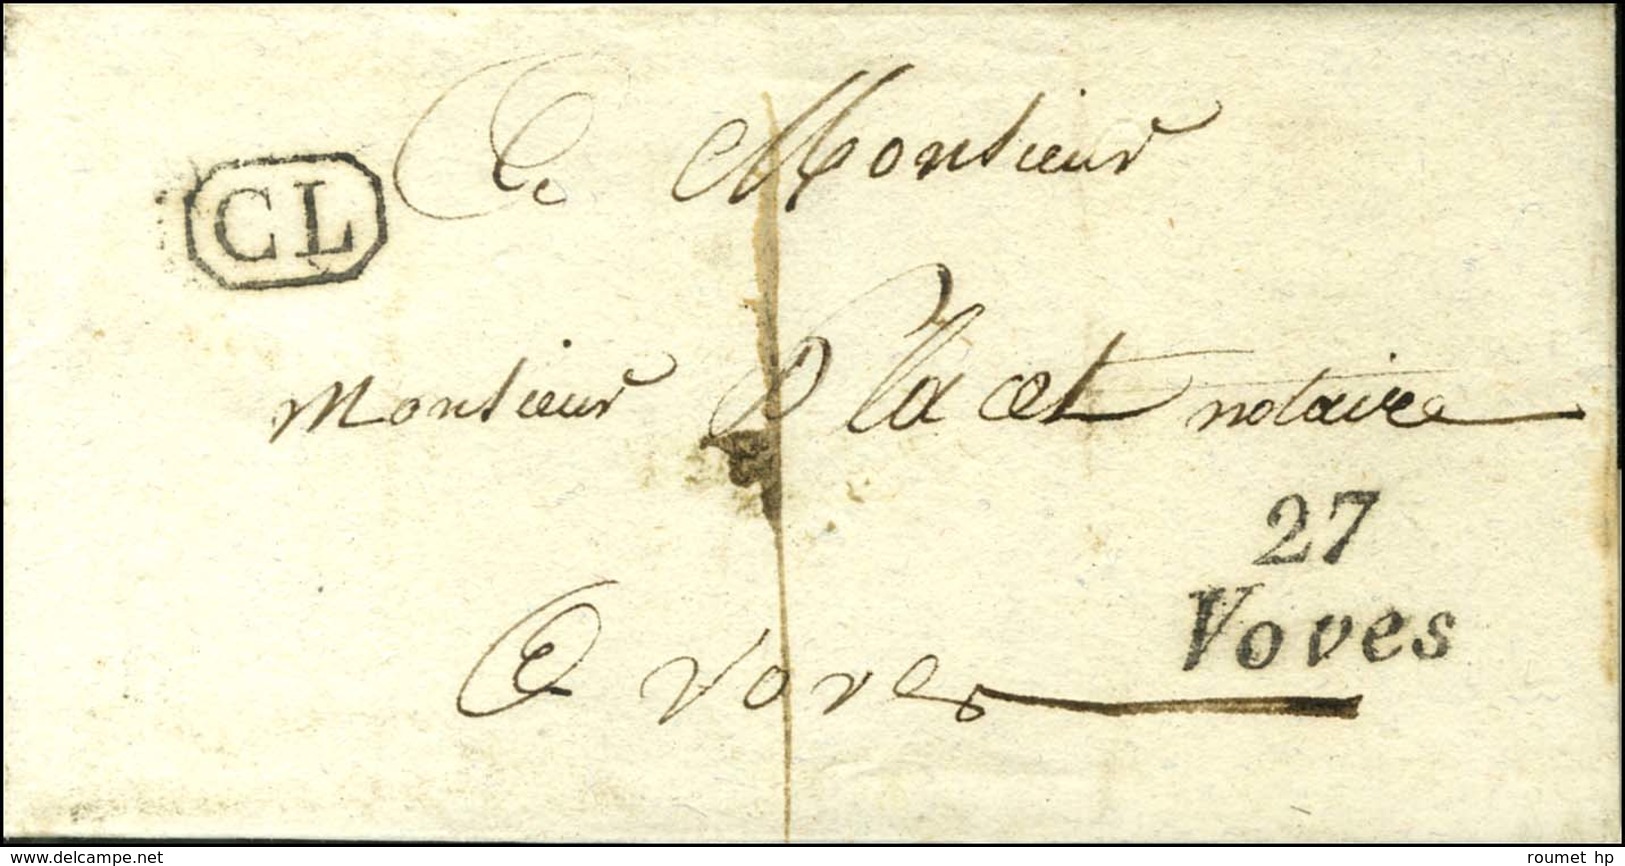 A Monsieur
CL
Monsieur Placet notaire
27
Voves
A voves
www.delcampe.net
roumet hp